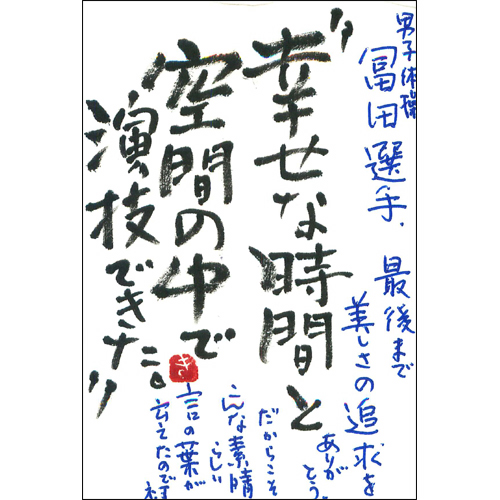 男子体操
冨田選手、
最後まで
美しさの追求を
ありが
とう。
"幸せな時間と
空間の中で
演技できた"
だからこそ
こんな素晴
らしい
言の葉が
言えたのですね